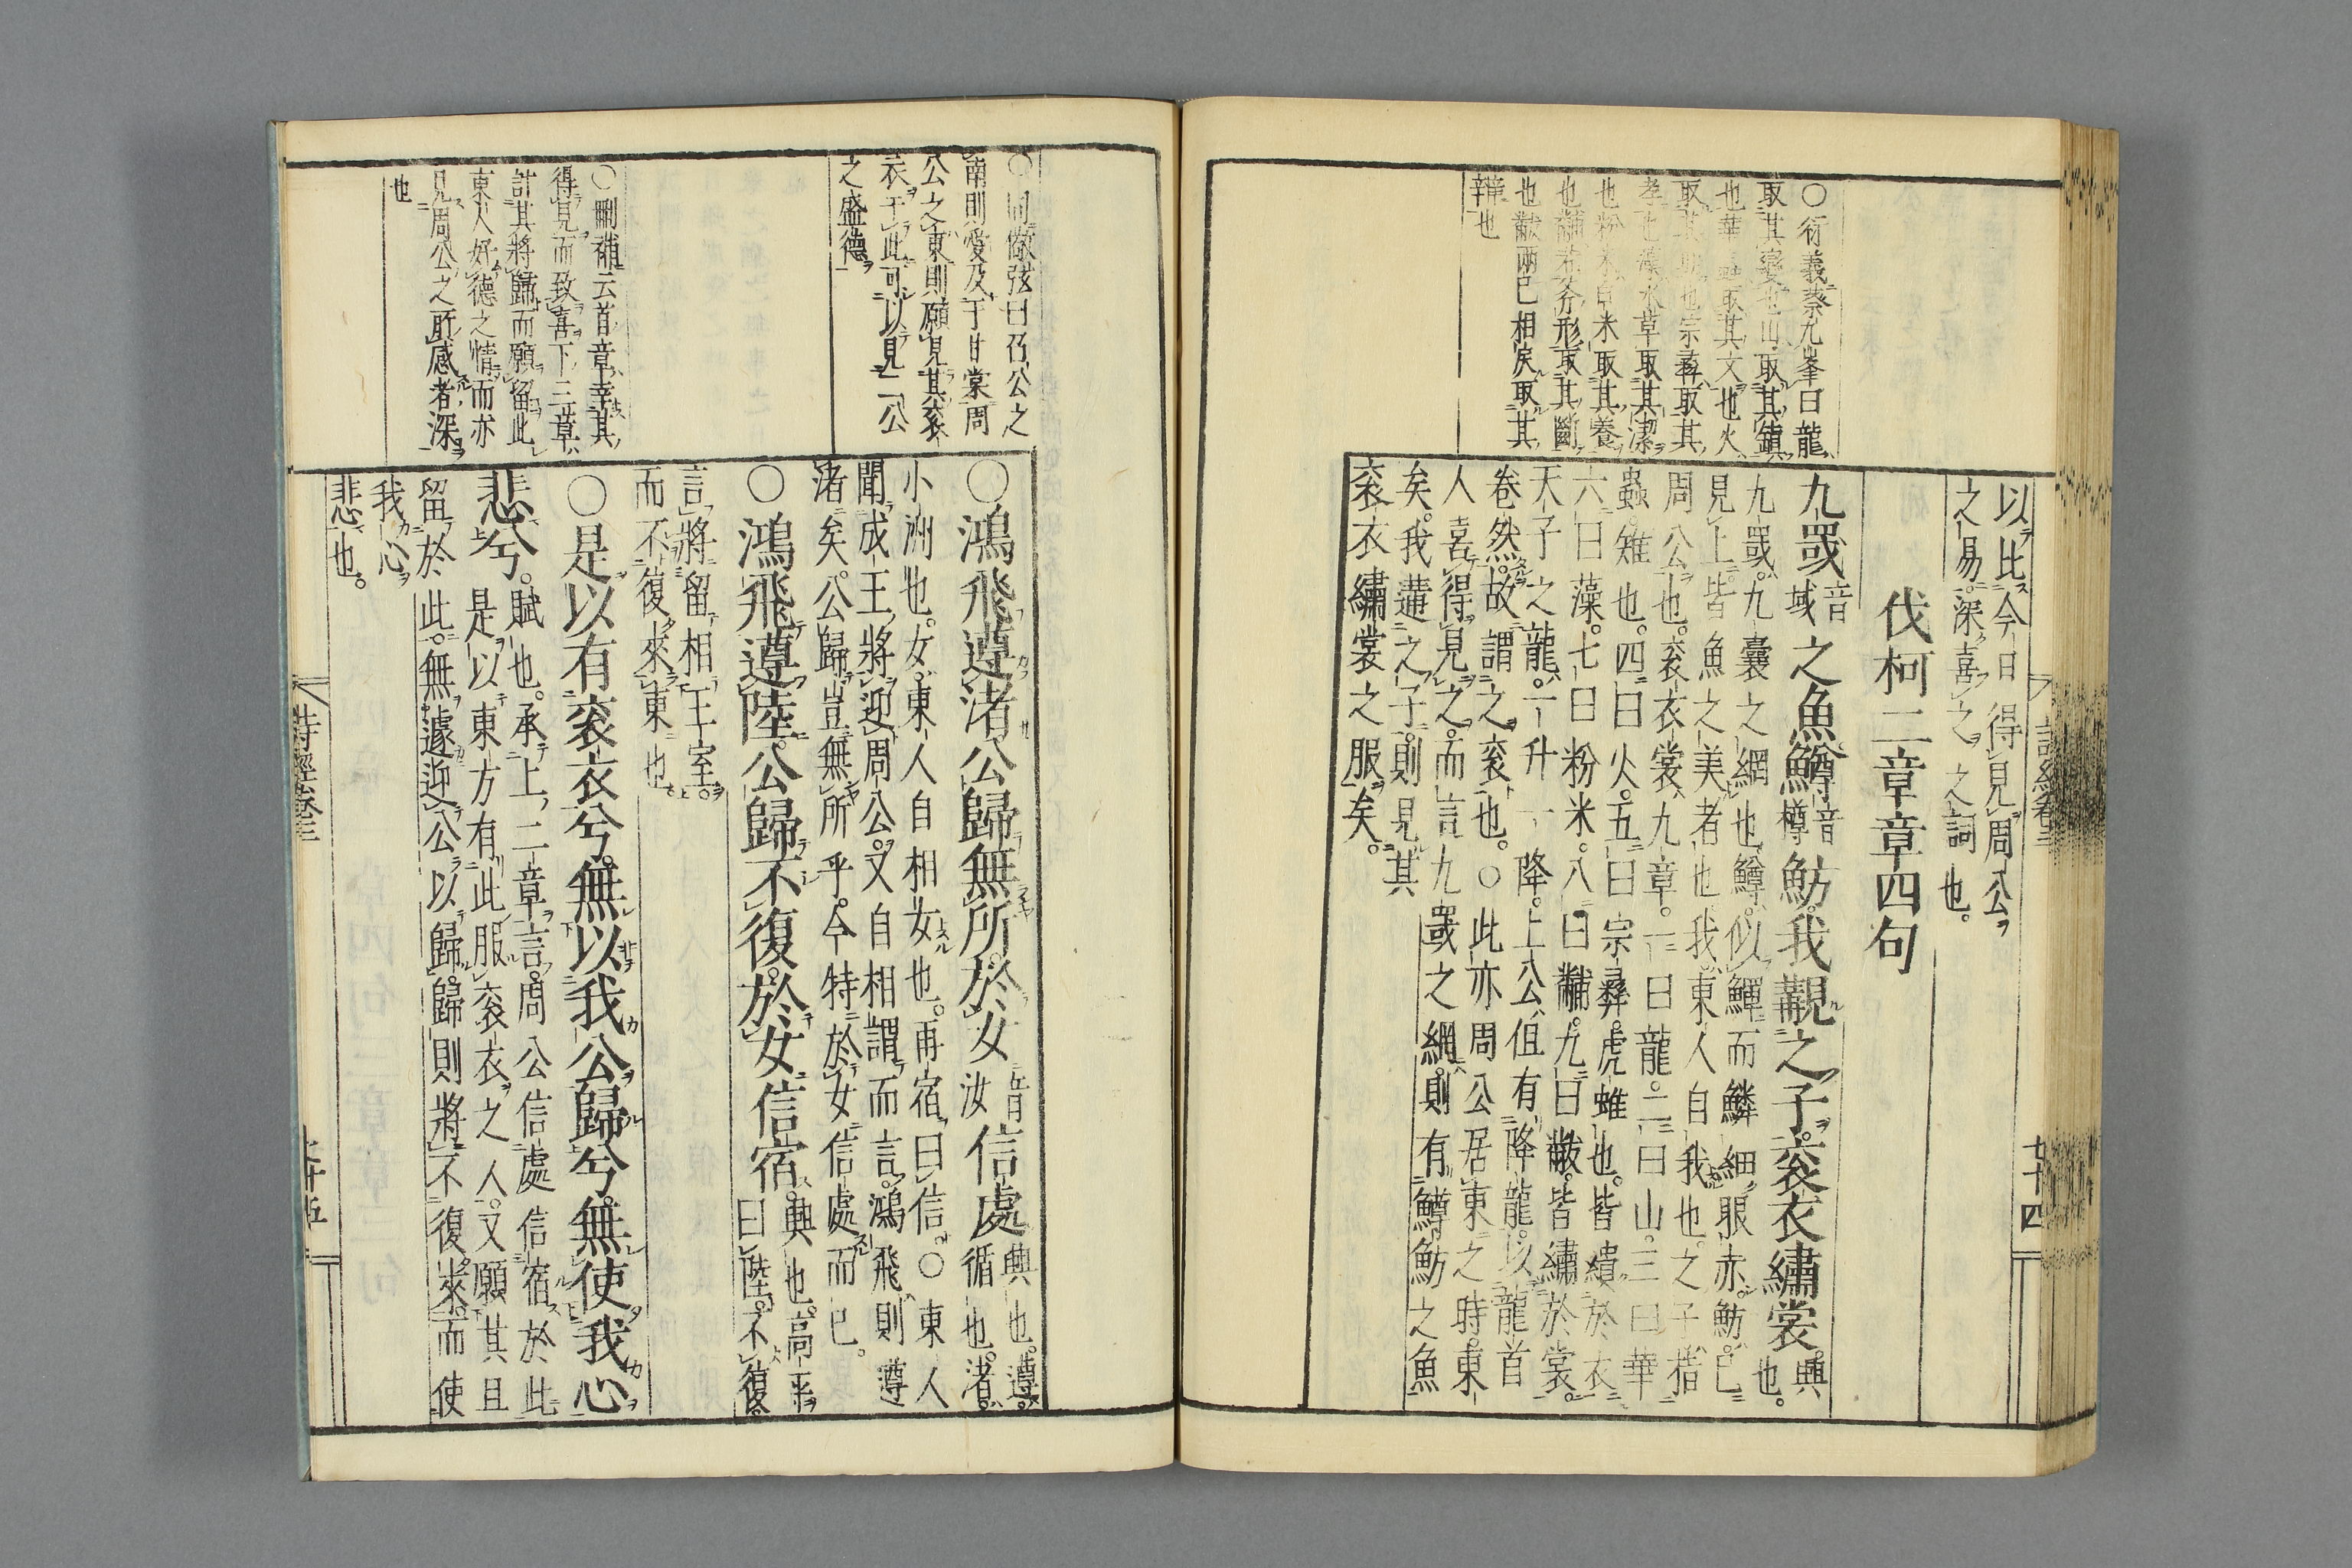 以比今日得見周公
之易深喜之之詞也。
伐柯二章章四句
九罭音域之魚鱒音樽魴。我覯之子。袞衣繡裳。興也。
九罭九囊之網也鱒似鯶而鱗細眼赤。魴已
見上皆魚之美者也我東人自我也。之子指
周公也。袞衣裳九章。一曰龍。二曰山。三曰華
蟲。雉也。四曰火。五曰宗彝。虎蜼也。皆繢於衣
六曰藻。七曰粉米。八曰黼。九曰黻。皆繡於裳。
天子之龍。一升一降。上公但有降龍。以龍首
卷然。故謂之袞也。○此亦周公居東之時。東
人喜得見之。而言九罭之網則有鱒魴之魚
矣。我遘之子。則見其
袞衣繡裳之服矣。
○衍義蔡九峯曰龍
取其變也山取其鎮
也華蟲取其文也火
取其明也宗彝取其
孝也藻水草取其潔
也粉米白米取其養
也黼若斧形取其斷
也黻兩己相戾取其
辯也
詩經卷三
七十四
○鴻飛遵渚公歸無所。於女音汝信處興也。遵。循也。渚。
小洲也。女。東人自相女也。再宿曰信。○東人
聞成王將迎周公。又自相謂而言。鴻飛則遵
渚矣。公歸豈無所乎。今特於女信處而已。
○鴻飛遵陸。公歸不復。於女信宿。興也。高平曰陸。不復。
言將留相王室。
而不復來東也。
○是以有袞衣兮。無以我公歸兮。無使我心
悲兮。賦也。承上二章言。周公信處信宿於此
是以東方有此服袞衣之人。又願其且
留於此。無遽迎公以歸。歸則將不復來。而使
我心
悲也。
○同做弦曰召公之
南則愛及于甘棠周
公之東則願見其袞
衣于此可以見二公
之盛德
○刪補云首章幸其
得見而致喜下三章
計其將歸而願留此
東人好德之情而亦
見周公之所感者深
也
詩經卷三
七十五